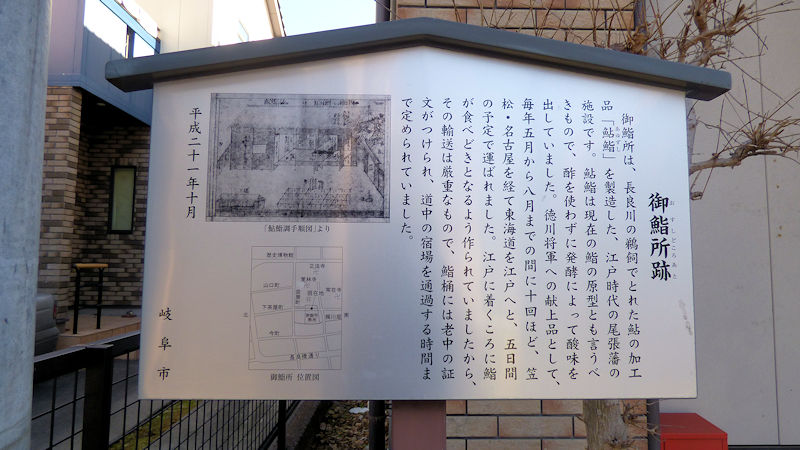 御鮨所跡
お すしどころあと
御鮨所は、長良川の鵜飼でとれた鮎の加工
品「鮎鮨」を製造した、江戸時代の尾張藩の
あゆずし
施設です。鮎鮨は現在の鮨の原型とも言うべ
きもので、酢を使わずに発酵によって酸味を
出していました。徳川将軍への献上品として、
毎年五月から八月までの間に十回ほど、笠
松・名古屋を経て東海道を江戸へと、五日間
の予定で運ばれました。江戸に着くころに鮨
が食べどきとなるよう作られていましたから、
その輸送は厳重なもので、鮨桶には老中の証
文がつけられ、道中の宿場を通過する時間ま
で定められていました。
「鮎鮨調手順図」より
歴史博物館
正法寺
山口町
現在地
常在寺
下茶屋町
御鮨所
北
南
今町
長良橋通り
御鮨所 位置図
平成二十一年十月
岐阜市